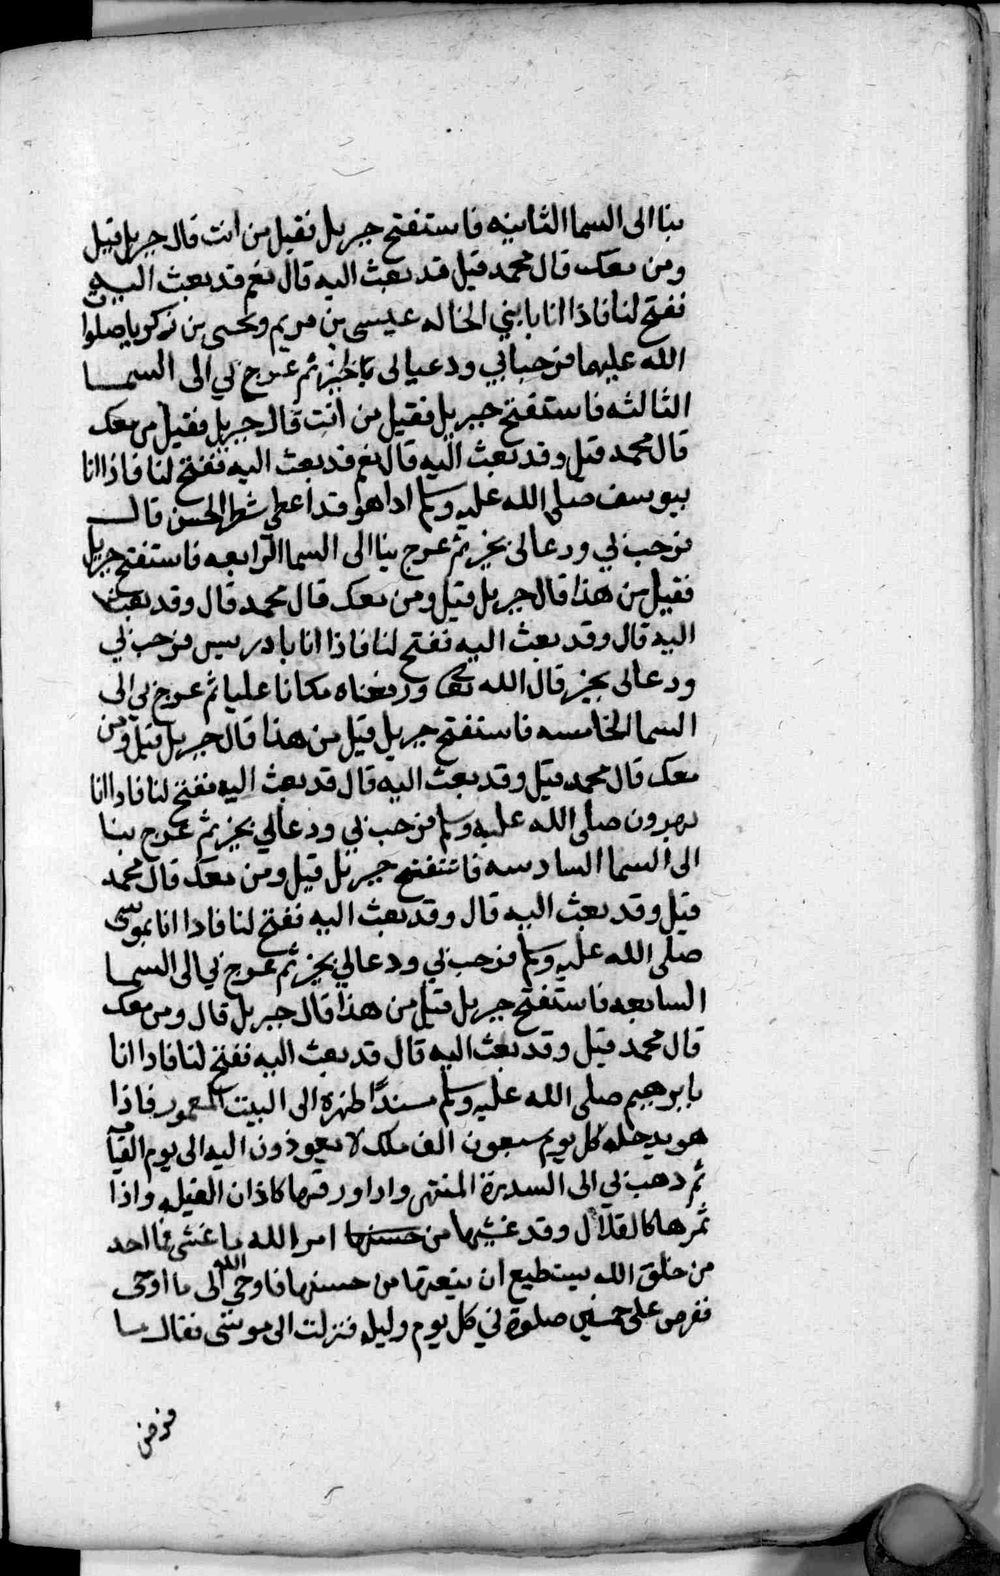 بنا الى السما الثانيه فاستفتح جبريل فقيل من انت قال جبريل قيل
ومن معك قال محمد قيل قد بعث اليه قال نعم قد بعث اليه
ففتح لنا فاذا انا بابني الخاله عيسى بن مريم ويحيى بن زكريا صلوات
الله عليهما فرحبا بي ودعيا لى بالخير ثم عرج بي الى السما
الثالثه فاستفتح جبريل فقيل من انت قال جبريل فقيل من معك
قال محمد قيل وقد بعث اليه قال نعم قد بعث اليه ففتح لنا فاذا انا
بيوسف صلى الله عليه وسلم اذا هو قد اعطي شطر الحسن قال
فرحب بي ودعا لى بخير ثم عرج بنا الى السما الرابعه فاستفتح جبريل
فقيل من هذا قال جبريل قيل ومن معك قال محمد قال وقد بعث
اليه قال وقد بعث اليه ففتح لنا فاذا انا بادريس فرحب بي
ودعا لى بخير قال الله تعا ورفعناه مكانا عليا ثم عرج بي الى
السما الخامسه فاستفتح جبريل قيل من هذا قال جبريل قيل ومن
معك قال محمد قيل وقد بعث اليه قال قد بعث اليه ففتح لنا فاذا انا
بهرون صلى الله عليه وسلم فرحب بي ودعا لي بخير ثم عرج بنا
الى السما السادسه فاستفتح جبريل قيل ومن معك قال محمد
قيل وقد بعث اليه قال وقد بعث اليه ففتح لنا فاذا انا بموسى
صلى الله عليه وسلم فرحب بي ودعا لي بخير ثم عرج بي الى السما
السابعه فاستفتح جبريل قيل من هذا قال جبريل قال ومن معك
قال محمد قيل وقد بعث اليه قال قد بعث اليه ففتح لنا فاذا انا
بابرهيم صلى الله عليه وسلم مسندًا ظهره الى البيت المعمور فاذا
هو يدخله كل يوم سبعون الف ملك لا يعوذون اليه الى يوم القيامه
ثم ذهب بي الى السدرة المنتهى واذا ورقها كاذان الفيله واذا
ثمرها كالقلال وقد غشيها من حسنها امر الله ما غشى فما احد
من خلق الله يستطيع ان ينعتها من حسنها فاوحى الله الى ما اوحى
ففرض على خمسين صلوة في كل يوم وليله فنزلت الى موسى فقال ما
فرض